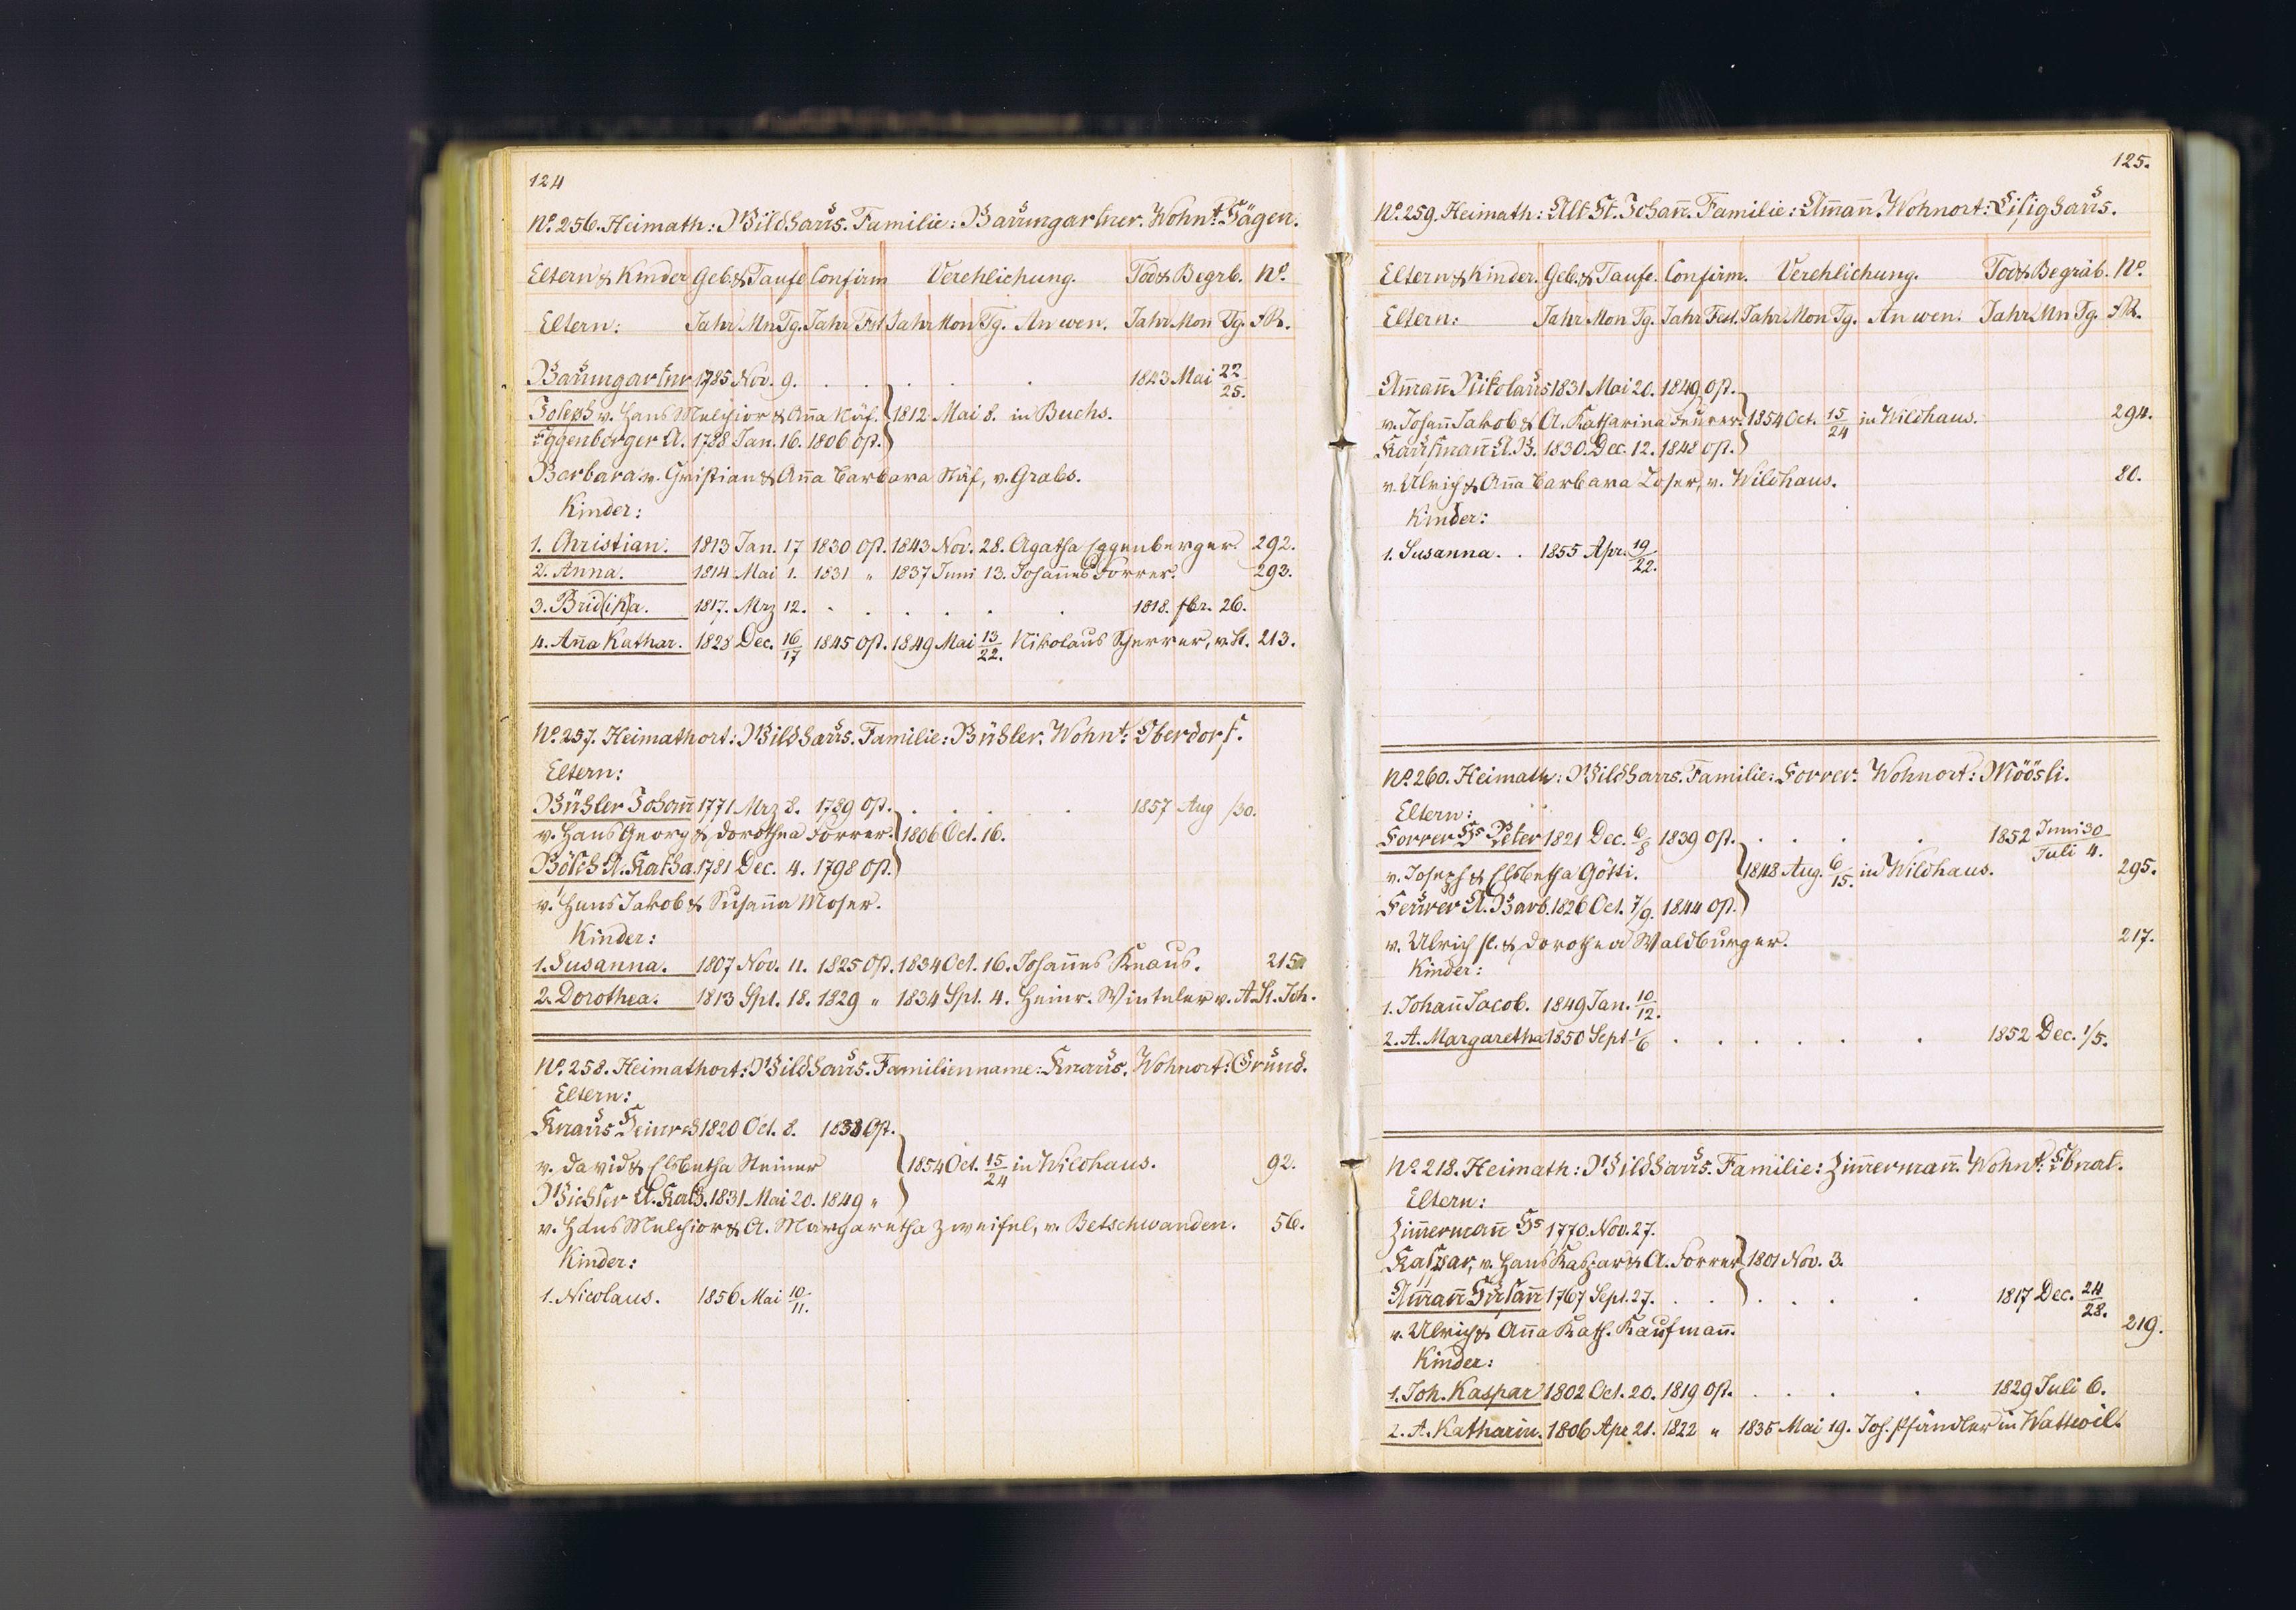 124
No. 256. Heimath: Wildhaus. Familie: Baumgartner. Wohnt: Hägen.
Eltern & Kinder Geb. & Taufe Confirm Verehlichung. Tod & Begrb. No.
Eltern: Jahr Mn Tg. Jahr Fst Jahr Mon Tg. An wen. Jahr Mon Tg. FR.
Baumgartner 1785 Nov. 9. . . . . . 1843 Mai 22/25.
Joseph v. Hans Melchior & Aña Näf. 1812 Mai 8. in Buchs.
Eggenberger A. 1788 Jan. 16. 1806 Ost.
Barbara v. Christian & Aña Barbara Näf, v. Grabs.
Kinder:
1. Christian. 1813 Jan. 17 1830 Ost. 1843 Nov. 28. Agatha Eggenberger. 292.
2. Anna. 1814 Mai 1. 1831 " 1837 Juni 13. Johañes Forrer. 293.
3. Brid(ik)a. 1817. Mrz 12. . . . . . . 1818. fbr. 26.
4. Aña Kathar. 1828 Dec. 16/17 1845 Ost. 1849 Mai 13/22. Nikolaus Scherrer, v. St. 213.
No. 257. Heimathort: Wildhaus. Familie: Bühler. Wohnt: Oberdorf.
Eltern:
Bühler Johañ 1771 Mrz 8. 1789 Ost. . . . . 1857 Aug /30.
v. Hans Georg & Dorothea Forrer. 1806 Oct. 16.
Bösch A. Katha. 1781 Dec. 4. 1798 Ost.
v. Hans Jakob & Susaña Moser.
Kinder:
1. Susanna. 1807 Nov. 11. 1825 Ost. 1834 Oct. 16. Johañes Knaus. 215
2. Dorothea. 1813 Spt. 18. 1829 " 1834 Spt. 4. Heinr. Winteler v. A. St. Joh.
No. 258. Heimathort: Wildhaus. Familienname: Knaus. Wohnort: Grund.
Eltern:
Knaus Heinrich 1820 Oct. 8. 1838 Ost.
v. David & Elsbetha Steiner 1854 Oct. 15/24 in Wildhaus. 92.
Bichler A. Kath. 1831 Mai 20. 1849 "
v. Hans Melchior & A. Margaretha Zweifel, v. Betschwanden. 56.
Kinder:
1. Nicolaus. 1856 Mai 10/11.
125.
No. 259. Heimath: Alt St. Johañ. Familie: Amañ. Wohnort: Lisighaus.
Eltern & Kinder. Geb. & Taufe. Confirm. Verehlichung. Tod & Begräb. No.
Eltern: Jahr Mon Tg. Jahr Fest. Jahr Mon Tg. An wen. Jahr Mn Tg. FR.
Amañ Nikolaus 1831 Mai 20. 1849 Ost.
v. Johañ Jakob & A. Katharina Feurer. 1854 Oct. 15/24 in Wildhaus. 294.
Kaufmañ A. B. 1830. Dec. 12. 1848 Ost.
v. Ulrich & Aña Barbara Loser, v. Wildhaus. 80.
Kinder:
1. Susanna. . 1855 Apr. 19/22.
No. 260. Heimath: Wildhaus. Familie: Forrer. Wohnort: Möösli.
Eltern:
Forrer Hs Peter 1821 Dec. 6/8 1839 Ost. . . . . . 1852 Juni 30/Juli 4.
v. Joseph & Elsbetha Götti. 1848 Aug. 6/15. in Wildhaus. 295.
Feurer A. Barb. 1826 Oct. 7/9. 1844 Ost.
v. Ulrich sl. & Dorothea Waldburger. 217.
Kinder:
1. Johañ Jacob. 1849 Jan. 10/12.
2. A. Margaretha 1850 Sept 1/6 . . . . . . 1852 Dec. 1/5.
No. 218. Heimath: Wildhaus. Familie: Zimermañ. Wohnt: Ebnat.
Eltern:
Zimermañ Hs 1770. Nov. 27.
Kaspar, v. Hans Kaspar & A. Forrer 1801 Nov. 3.
Amañ Susañ 1767 Sept. 27. . . . . . . 1817 Dec. 24/28.
v. Ulrich & Aña Kath. Kaufmañ. 219.
Kinder:
1. Joh. Kaspar 1802 Oct. 20. 1819 Ost. . . . . 1829 Juli 6.
2. A. Katharin. 1806 Apr 21. 1822 " 1835 Mai 19. Joh. Pfändler in Wattwil.